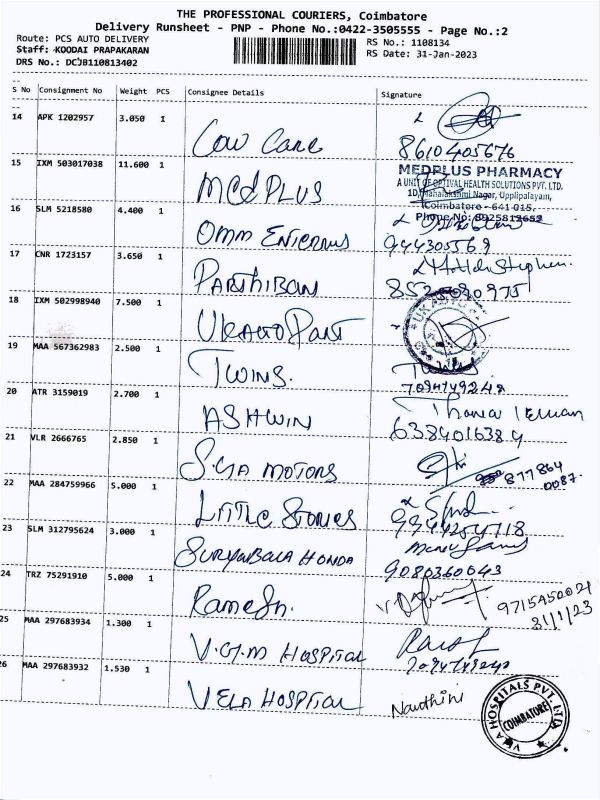 THE PROFESSIONAL COURIERS, Coimbatore
Delivery Runsheet - PNP - Phone No.:0422-3505555 - Page No.:2
Route: PCS AUTO DELIVERY
Staff: KOODAI PRAPAKARAN
DRS No.: DCJB110813402
RS No.: 1108134
RS Date: 31-Jan-2023
S No Consignment No Weight PCS Consignee Details Signature
14 APK 1202957 3.050 1 Cow Care 8610405676
15 IXM 503017038 11.600 1 MEDPLUS
MEDPLUS PHARMACY
A UNIT OF OPTIVAL HEALTH SOLUTIONS PVT. LTD.
10, Mahalakshmi Nagar, Upplipalayam,
Coimbatore - 641 015.
Phone No: 8925812653
16 SLM 5218580 4.400 1 OMM 944305569
17 CNR 1723157 3.650 1 PARTHIBAN Stephen.
18 IXM 502998940 7.500 1 UKAUTO PART
19 MAA 567362983 2.500 1 TWINS. 7094749248
20 ATR 3159019 2.700 1 ASHWIN 6384016389
21 VLR 2666765 2.850 1 MOTORS 877864
0087.
22 MAA 284759966 5.000 1 LITTLE STORIES
23 SLM 312795624 3.000 1 SURYABALA HONDA 9080360643
24 TRZ 75291910 5.000 1 Ramesh. 9715450021
31/1/23
25 MAA 297683934 1.300 1 V.G.M HOSPITAL
26 MAA 297683932 1.530 1 VELA HOSPITAL Nandhini
HOSPITALS PVT. LTD.
COIMBATORE